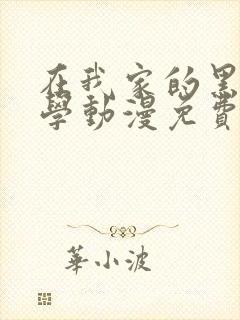 在我家的黑
學動漫免費
華小波